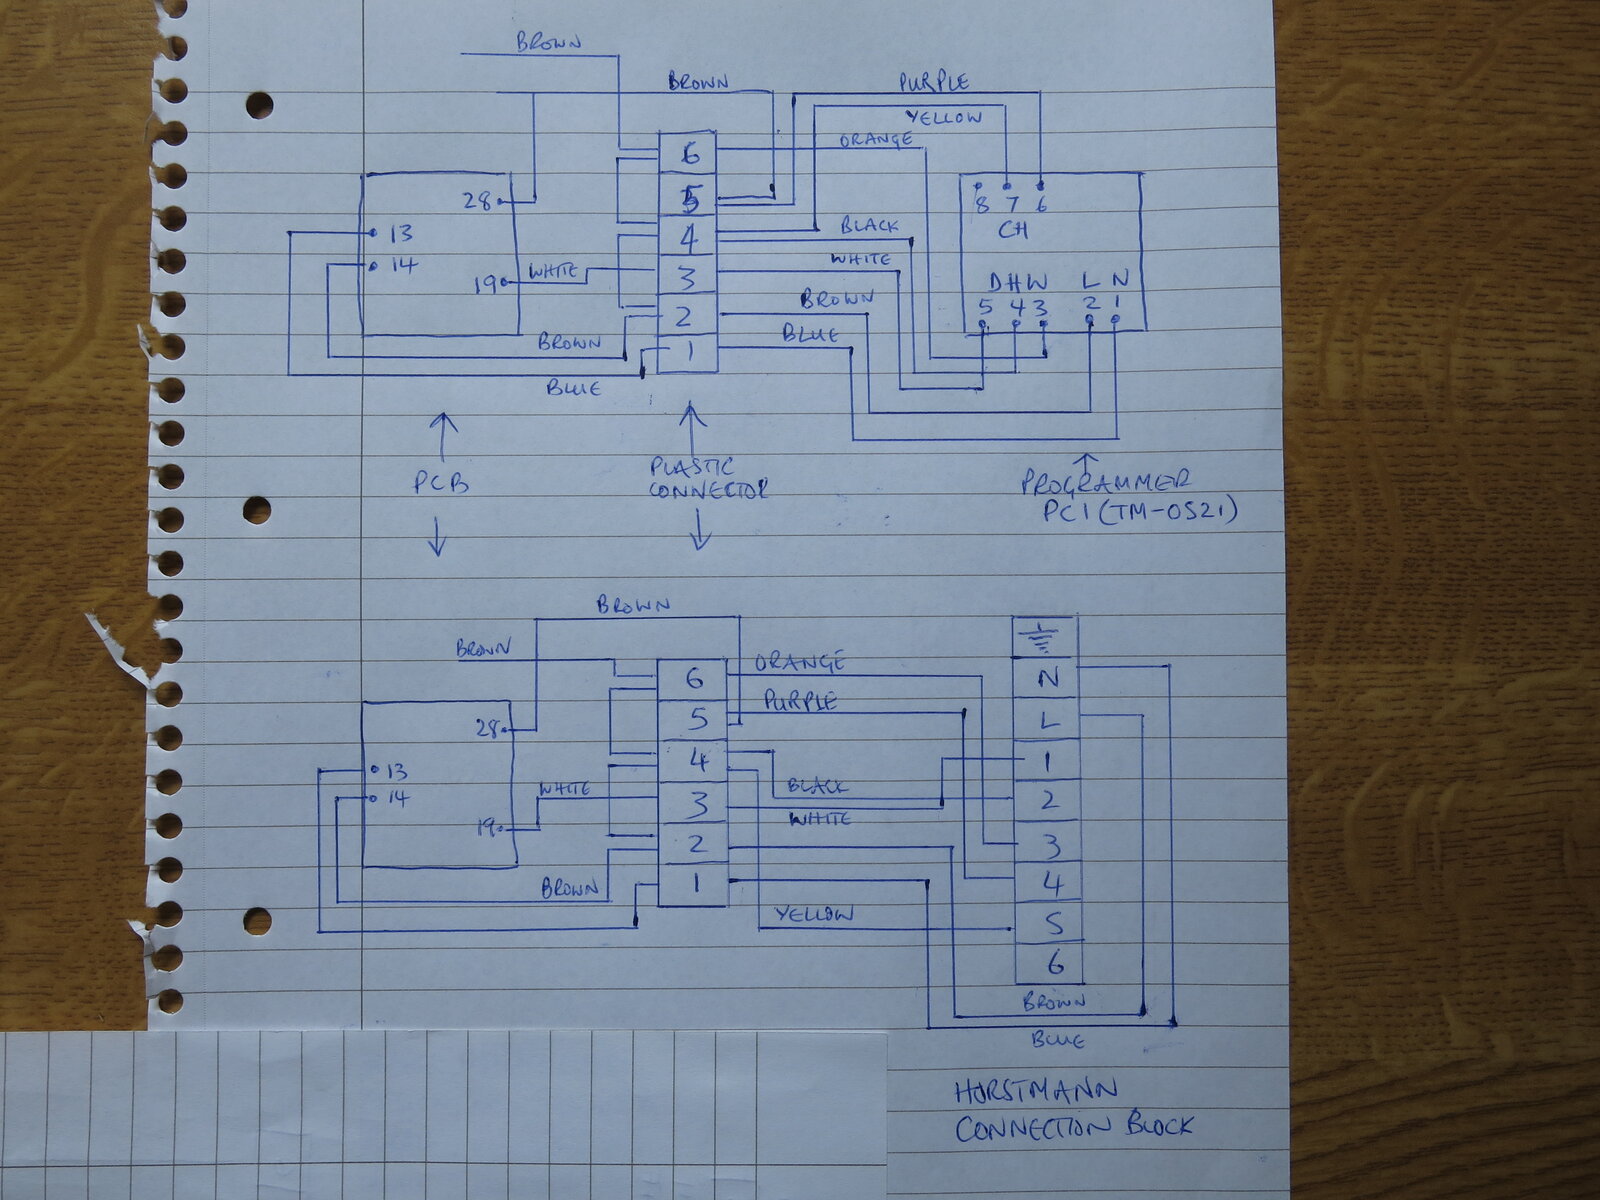 BROWN
BROWN
PURPLE
YELLOW
ORANGE
6
5
4
3
2
1
28
13
14
19
WHITE
BROWN
BLUE
BLACK
WHITE
BROWN
BLUE
8 7 6
CH
DHW L N
5 4 3 2 1
PCB
PLASTIC
CONNECTOR
PROGRAMMER
PC1 (TM-0521)
BROWN
BROWN
28
13
14
19
WHITE
BROWN
6
5
4
3
2
1
ORANGE
PURPLE
BLACK
WHITE
YELLOW
N
L
1
2
3
4
5
6
BROWN
BLUE
HORSTMANN
CONNECTION BLOCK